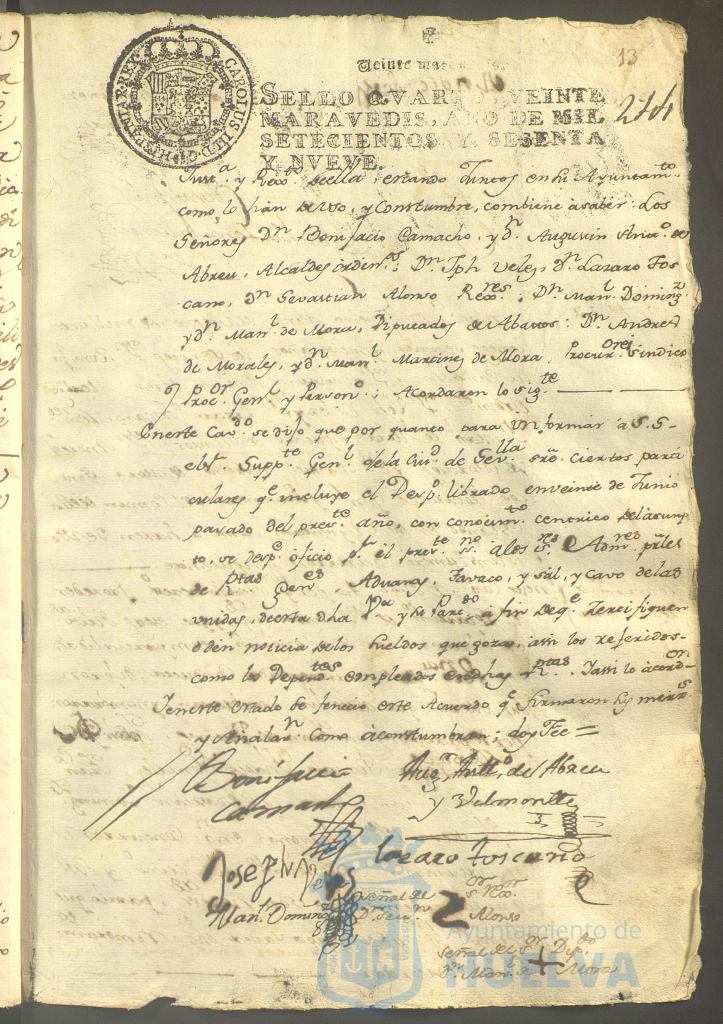 13
Veinte maravedis.
SELLO QVARTO, VEINTE
MARAVEDIS, AÑO DE MIL
SETECIENTOS Y SESENTA
Y NVEVE.
CAROLUS III D G HISPANIAR REX
Just.ª y Rex.to della, estando Juntos en su Ayuntam.to
como lo han de uso, y Constumbre, combiene a saber. Los
Señores D.n Bonifacio Camacho, y d.n Augustin Ant.o de
Abreu, Alcaldes orden.s; D.n Jph Velez, d.n Lazaro Tos
cano, d.n Sevastian Alonso Rex.res; D.n Man.l Doming.z
y d.n Man.l de Mora, Diputados de Abastos: D.n Andres
de Morales, y d.n Man.l Martinez de Mora, Procur.ores Sindico
Proc.or Gen.l y Person.o; Acordaron lo sig.te
En este Cav.do se dijo que por quanto para Ynformar á S.S.
el Supp.te Gen.l de la Ciu.d de Sev.lla sre. ciertos parti
culares q.e incluye el Desp.o librado en veinte de Junio
pasado del pres.te año, con conocim.to centrico del asump
to, se desp.o oficio p.r el pres.te ss.no a los s.res Adm.res prales
de Rtas Gen.es Aduanas, Tavaco, y sal, y Cavo de las
unidas, de esta dha V.ª y su Par.do a fin de q.e Zertifiquen
o den noticia de los sueldos que gozan, assi los referidos
como los Depend.tes empleados en dhas Rtas. Y assi lo acord.on
Y en este estado de fenecio este Acuerdo q.e firmaron sus mrz.s
y señalar.n como acostumbran; doy Fee =
Bonifacio
Camacho
Aug.n Antt.o de Abreu
y Velmonte
Joseph Velez
Lazaro Toscano
Man.l Doming.z
señal del s.or Rex.or
D.n Sevn. Alonso
señal del s.r Dip.do
D.n Man. de Mora
Ayuntamiento de
HUELVA